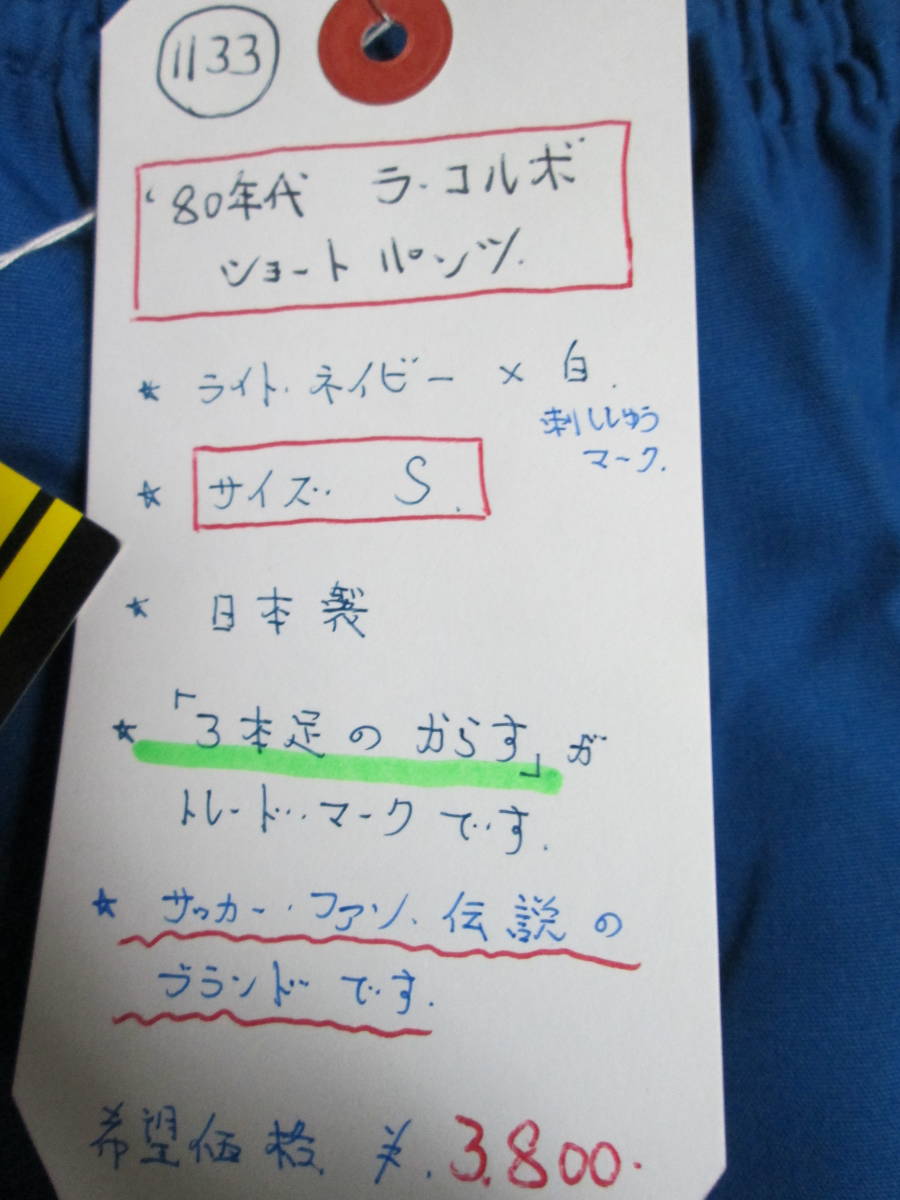 1133
'80年代 ラ・コルボ
ショートパンツ.
★ ライト・ネイビー × 白.
刺ししゅう
マーク.
★ サイズ. S.
★ 日本製
★ 「3本足のからす」が
トレード・マークです.
★ サッカー・ファン、伝説の
ブランドです.
希望価格 ¥.3.800.